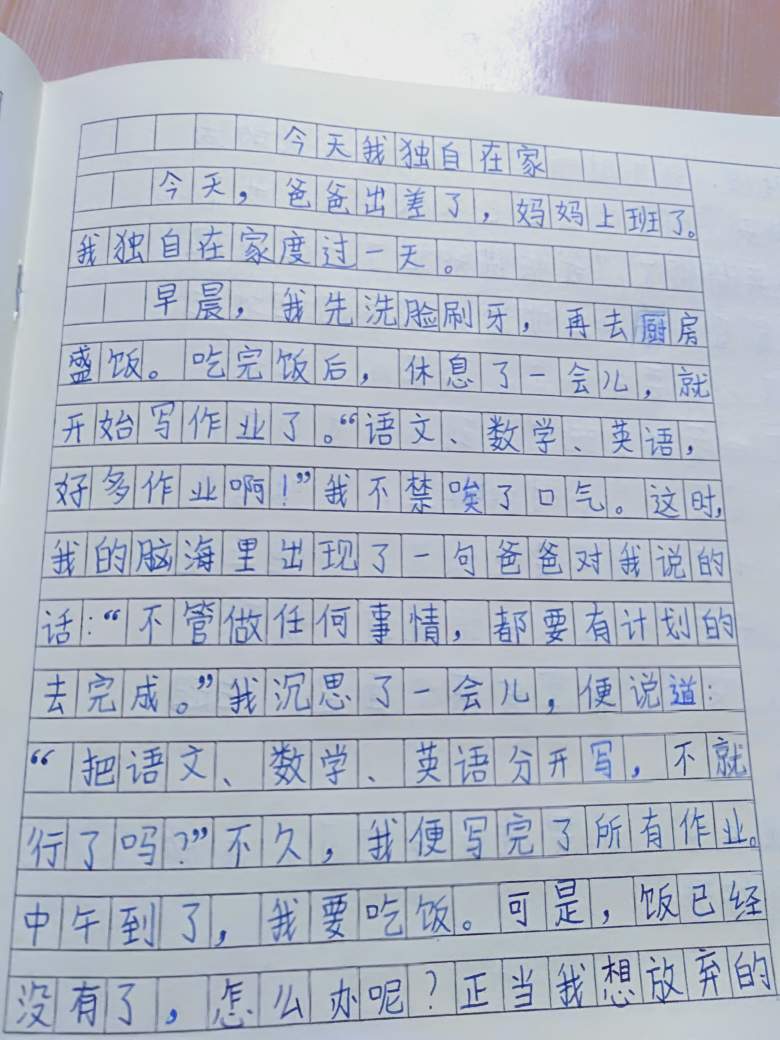 今天我独自在家
今天，爸爸出差了，妈妈上班了。
我独自在家度过一天。
早晨，我先洗脸刷牙，再去厨房
盛饭。吃完饭后，休息了一会儿，就
开始写作业了。“语文、数学、英语，
好多作业啊！”我不禁唉了口气。这时，
我的脑海里出现了一句爸爸对我说的
话：“不管做任何事情，都要有计划的
去完成。”我沉思了一会儿，便说道：
“把语文、数学、英语分开写，不就
行了吗？”不久，我便写完了所有作业。
中午到了，我要吃饭。可是，饭已经
没有了，怎么办呢？正当我想放弃的